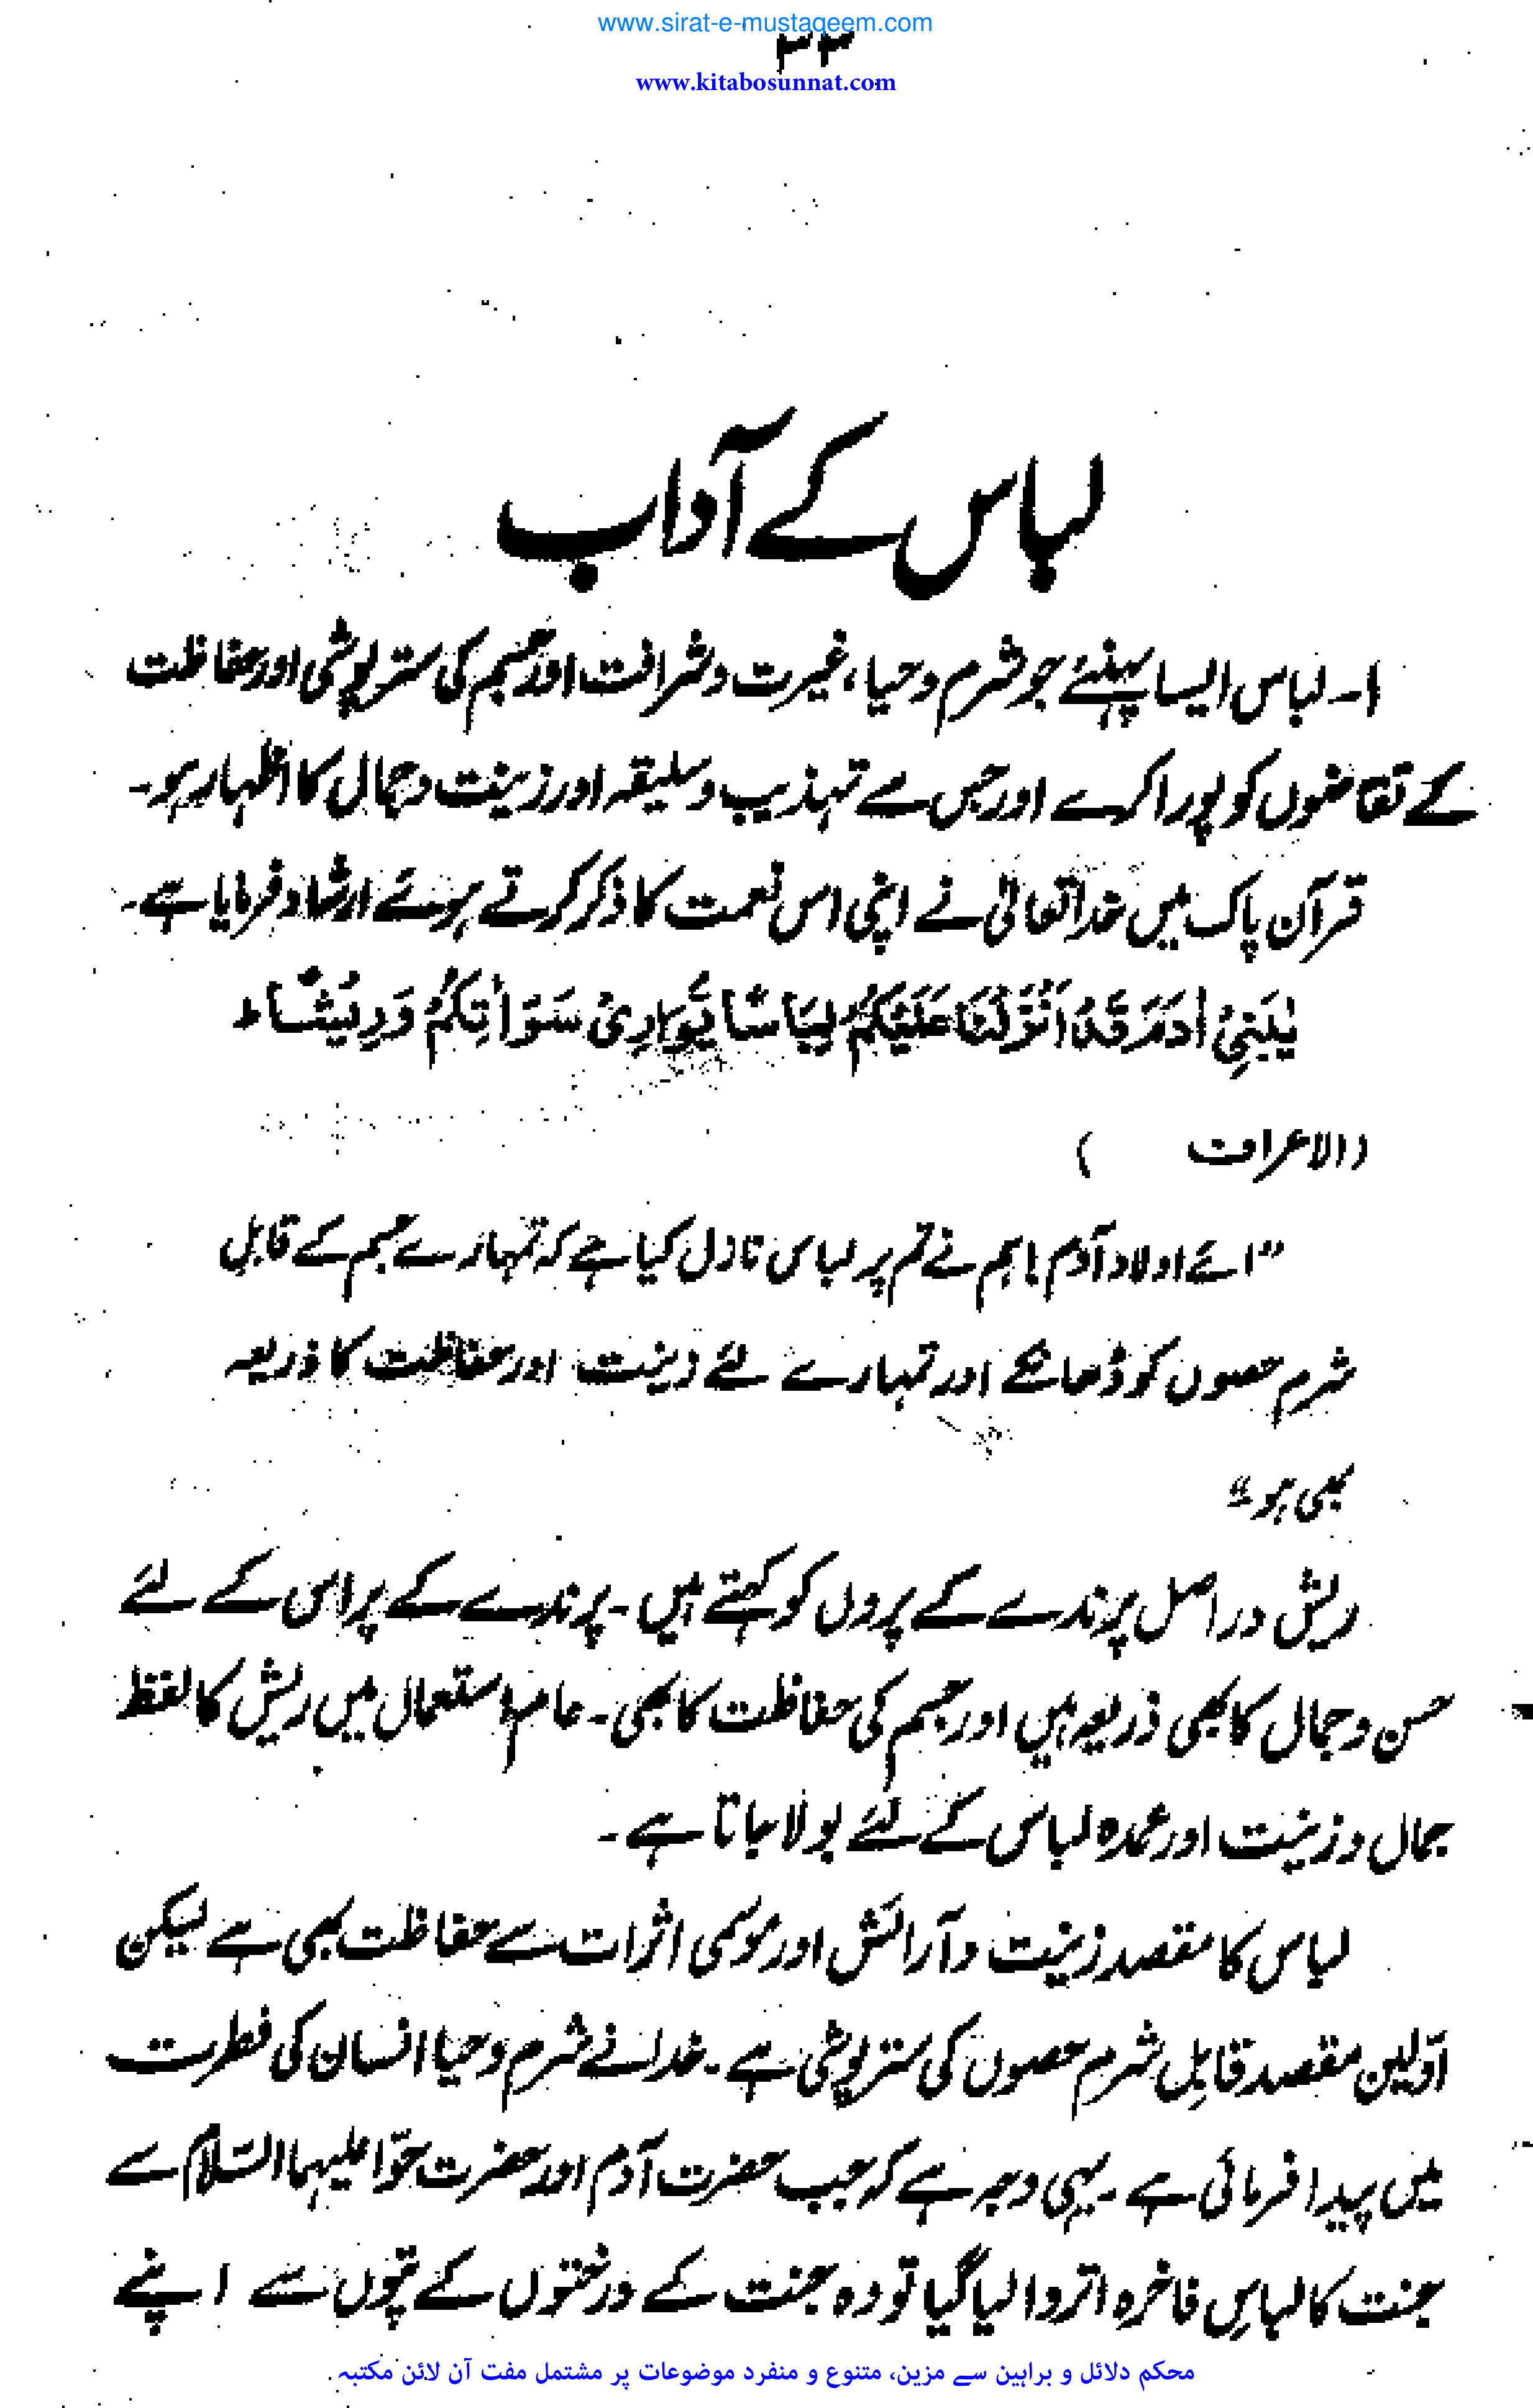 www.sirat-e-mustaqeem.com
۳۳
www.kitabosunnat.com
لباس کے آداب
۱۔ لباس ایسا پہنئے جو شرم و حیا، غیرت و شرافت اور جسم کی ستر پوشی اور حفاظت
کے تقاضوں کو پورا کرے اور جس سے تہذیب و سلیقہ اور زینت و جمال کا اظہار ہو۔
قرآن پاک میں خدا تعالیٰ نے اپنی اس نعمت کا ذکر کرتے ہوئے ارشاد فرمایا ہے۔
یٰبَنِیْٓ اٰدَمَ قَدْ اَنْزَلْنَا عَلَیْکُمْ لِبَاسًا یُّوَارِیْ سَوْاٰتِکُمْ وَرِیْشًا ط
(الاعراف )
”اے اولاد آدم! ہم نے تم پر لباس نازل کیا ہے کہ تمہارے جسم کے قابلِ
شرم حصوں کو ڈھانکے اور تمہارے لئے زینت اور حفاظت کا ذریعہ
بھی ہو“
ریش در اصل پرندے کے پروں کو کہتے ہیں۔ پرندے کے پر اس کے لئے
حسن و جمال کا بھی ذریعہ ہیں اور جسم کی حفاظت کا بھی۔ عام استعمال میں ریش کا لفظ
جمال و زینت اور عمدہ لباس کے لئے بولا جاتا ہے۔
لباس کا مقصد زینت و آرائش اور موسمی اثرات سے حفاظت بھی ہے لیکن
اوّلین مقصد قابلِ شرم حصوں کی ستر پوشی ہے۔ خدا نے شرم و حیا انسان کی فطرت
میں پیدا فرمائی ہے۔ یہی وجہ ہے کہ جب حضرت آدم اور حضرت حوّا علیہما السّلام سے
جنت کا لباسِ فاخرہ اتروا لیا گیا تو وہ جنت کے درختوں کے پتّوں سے اپنے
محکم دلائل و براہین سے مزین، متنوع و منفرد موضوعات پر مشتمل مفت آن لائن مکتبہ